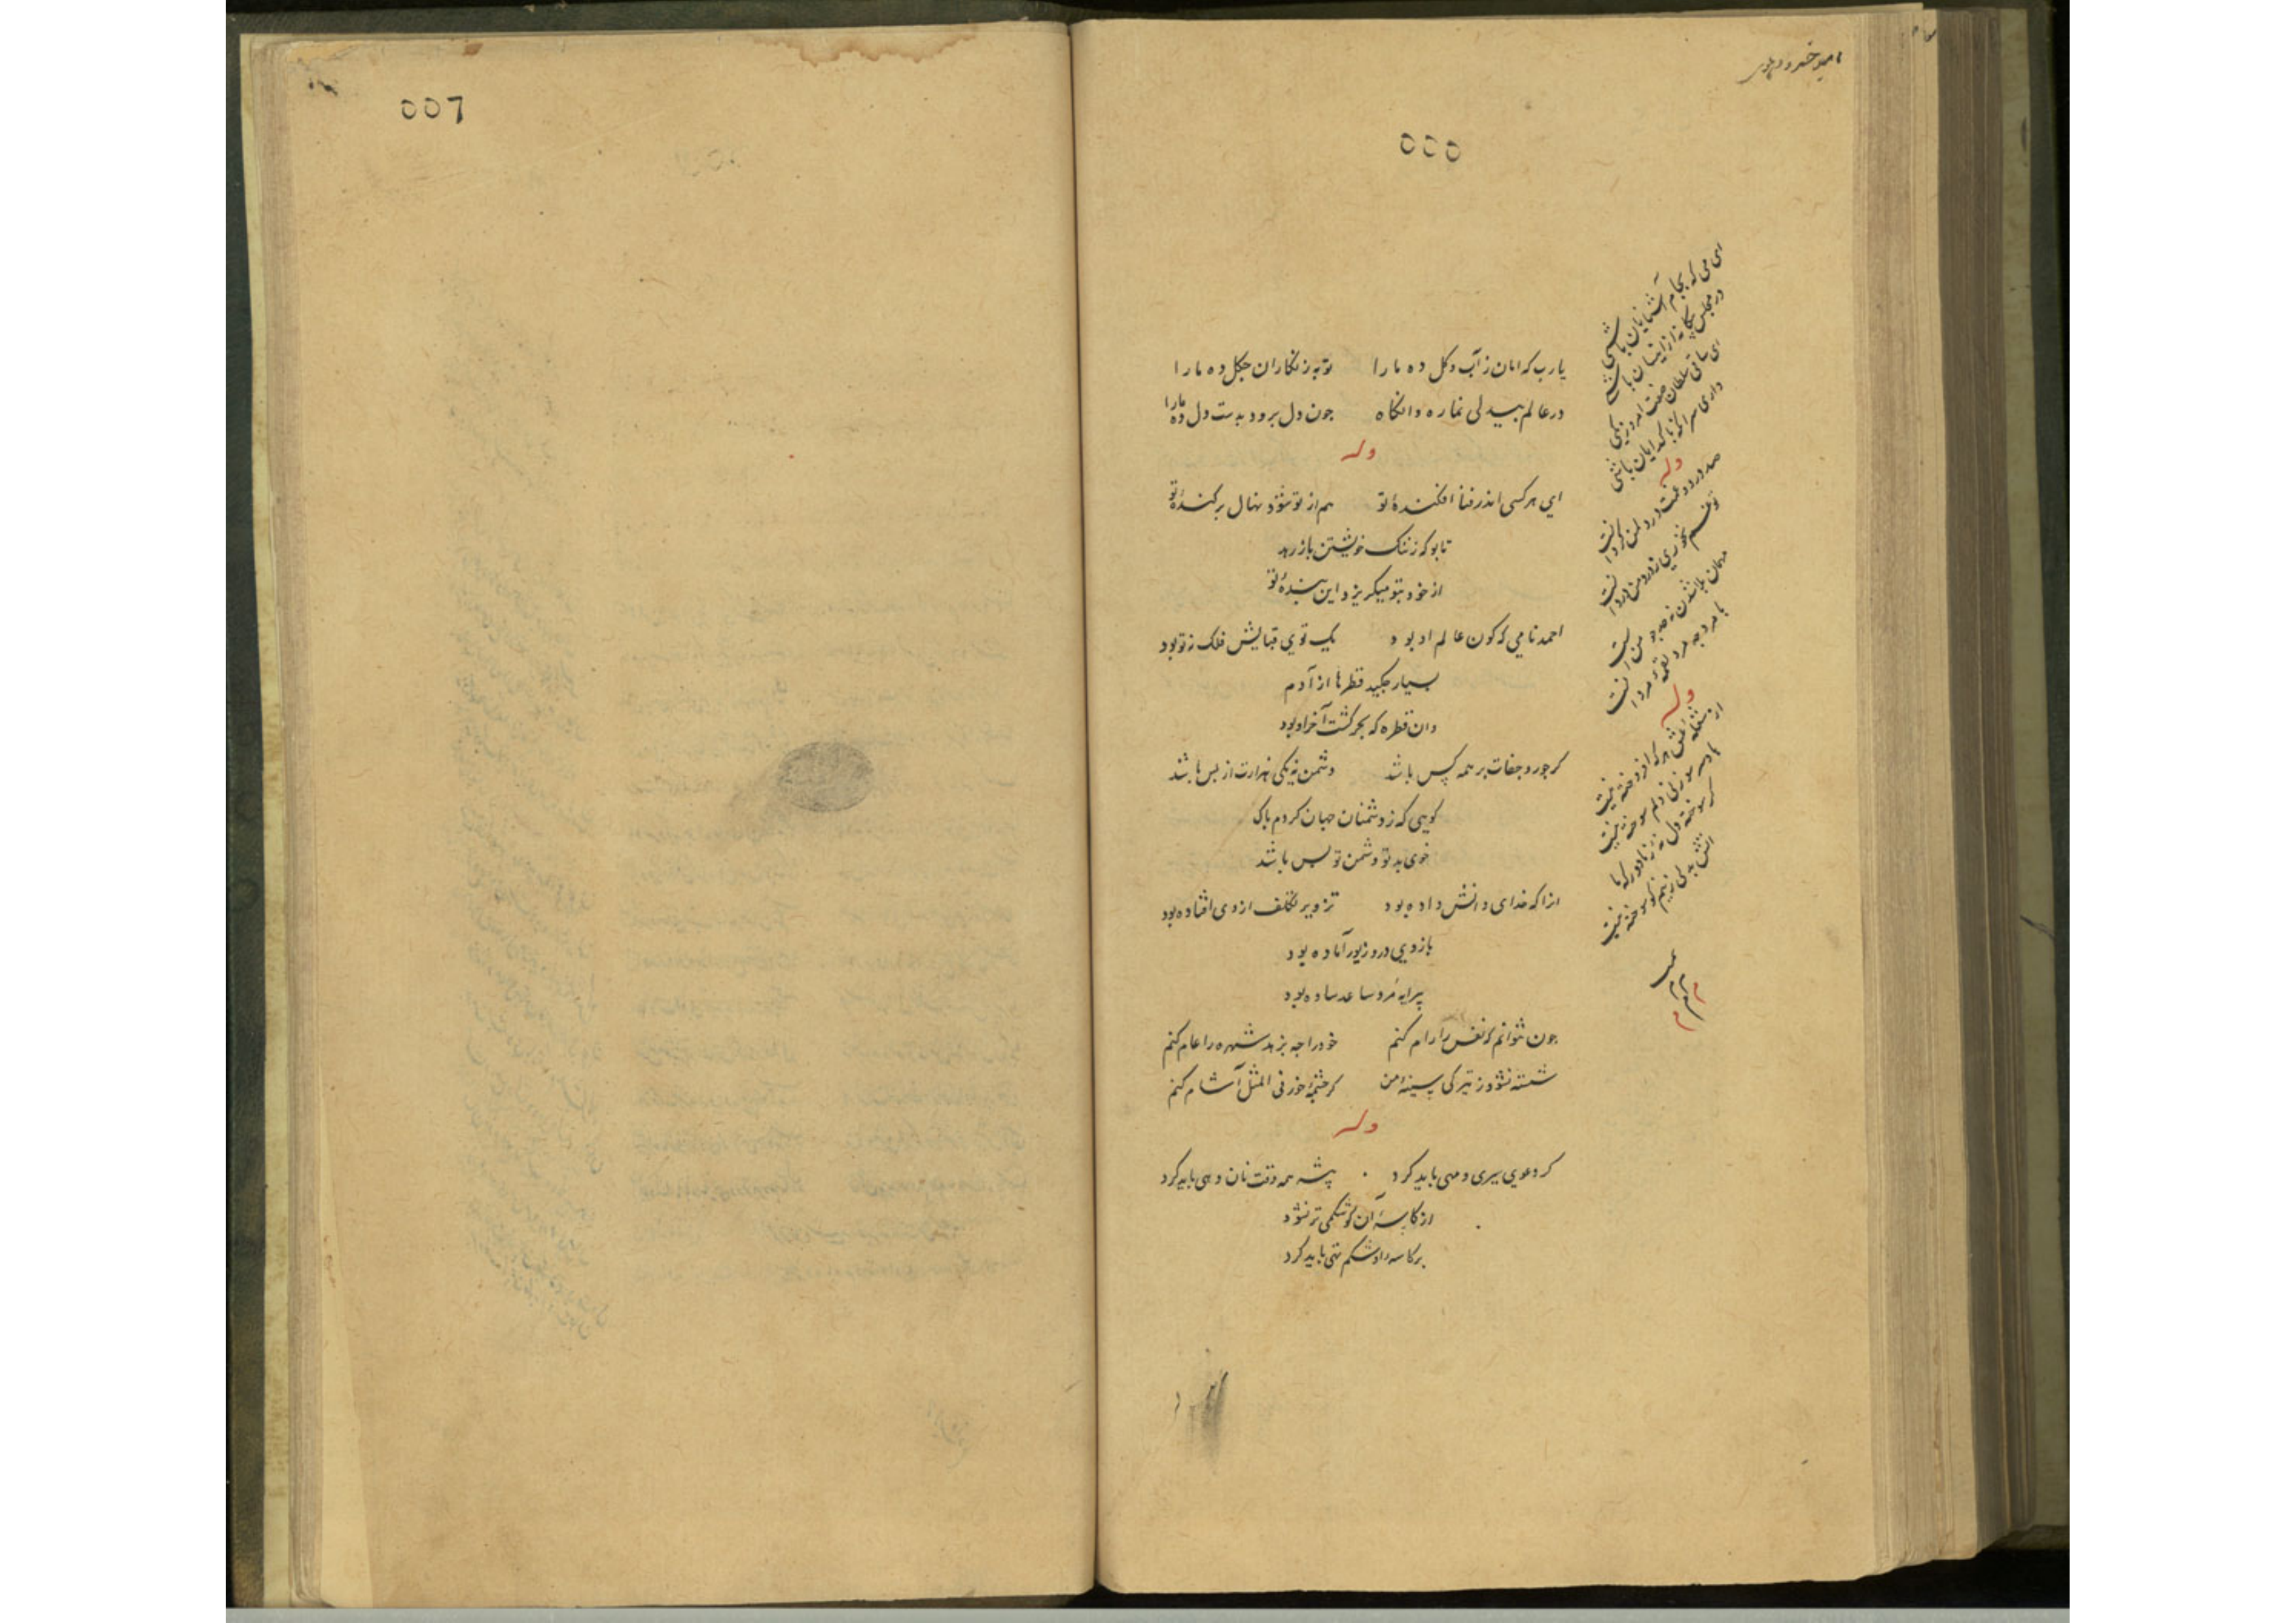 امیر خسرو دهلوی
٥٥٥
یا رب که امان ز آب و کل ده ما را توبه ز نکاران چکل ده ما را
در عالم بیدلی نما ره وانکاه جون دل برود بدست دل ده ما را
وله
ایی هر کسی اندر فنا افکندهٔ تو هم از تو شود نهال برکندهٔ تو
تا بو که ز ننک خویشتن باز رهد
از خود بتو میکریزد این بندهٔ تو
احمد نامی که کون عالم او بود یک توی قبایش فلک نه تو بود
بسیار چکید قطرها از آدم
وان قطره که بحر کشت آخر او بود
کر جور و جفات بر همه کس باشد دشمن نه یکی هزارت از پس باشد
کویی که ز دشمنان جهان کردم باک
خوی بد تو دشمن تو بس باشد
انرا که خدای دانش داده بود تزویر تکلف از وی افتاده بود
بازویی در و زیور آماده بود
پیرایه مرد ساعد ساده بود
جون نتوانم که نفس را رام کنم خود را جه بزهد شهره عام کنم
شسته نشود ز تیرکی سینهٔ من کر چشمهٔ خور فی المثل آشام کنم
وله
کر دعویی سیری و مهی باید کرد پیشه همه وقت نان دهی باید کرد
از کاسهٔ آن کو شکمی تر نشود
بر کاسه را و شکم تهی باید کرد
ای می که بجام آشنایان باشی
در مجلس بیکانه ازینسان باشی
ای ساقی سلطان صفت امروز یکی
داری سر آنکه با کدایان باشی
وله
صد درد و غمت در دل من کرد انست
تو غم نخوری ز درد من درد انست
مهمان بلا شدن نه حد جو من است
با مرد به مرد لقمهٔ مردانست
وله
از مشغله عشق هر که افروخته نیست
با او سر سوزنی دلم سوخته نیست
کر سوخته دل نه ز ما دور که ما
آتش بدلی زنیم کو سوخته نیست
٥٥٦